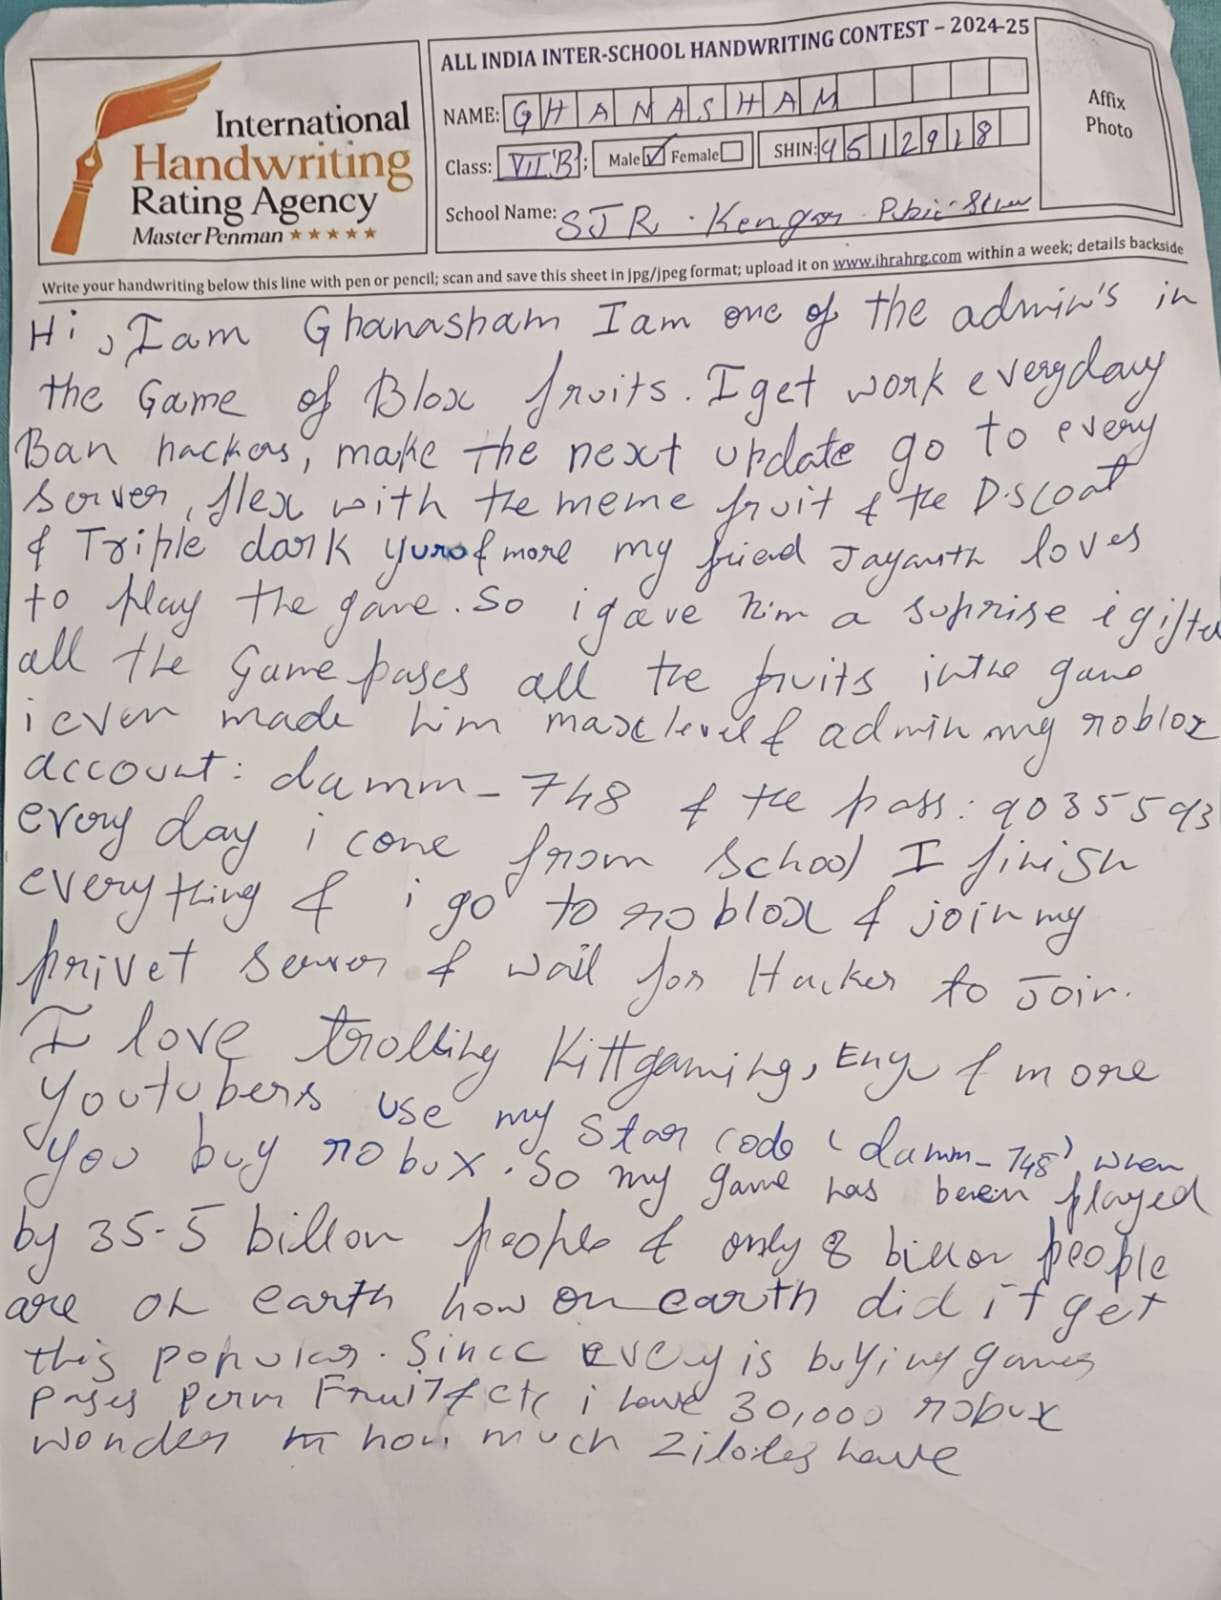 ALL INDIA INTER-SCHOOL HANDWRITING CONTEST – 2024-25
International
Handwriting
Rating Agency
Master Penman ★★★★★
NAME: GHANASHAM
Class: VII'B'; Male ☑ Female ☐ SHIN: 9512918
School Name: SJR . Kengar
Affix
Photo
Write your handwriting below this line with pen or pencil; scan and save this sheet in jpg/jpeg format; upload it on www.ihrahrg.com within a week; details backside
Hi, I am Ghanasham I am one of the admin's in
the Game of Blox fruits. I get work everyday
Ban hackers, make the next update go to every
server, flex with the meme fruit & the D.S coat
& Triple dark & more my friend Jayanth loves
to play the game. So i gave him a suprise i gifted
all the Game pases all the fruits in the game
i even made him max level & admin my roblox
account: damm_748 & the pass: 9035593
every day i come from School I finish
everything & i go to roblox & join my
privet server & wait for Hacker to Join.
I love trolling Kittgaming, & more
Youtubers use my star code 'damm_748' when
you buy robux. So my game has been played
by 35.5 billon people & only 8 billon people
are on earth how on earth did it get
this popular. Since every is buying games
pases perm Fruit & etc i have 30,000 robux
wonder how much have